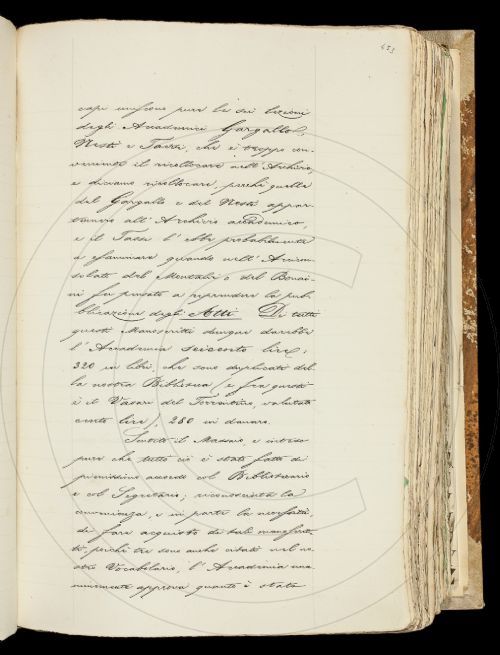 453
capi unissero pure le sei lezioni
degli Accademici Gargallo,
Nesti e Tassi, che è troppo con-
veniente il ricollocare nell'Archivio,
e diciamo ricollocare, perchè quelle
del Gargallo e del Nesti appar-
tennero all'Archivio accademico,
e il Tassi l'ebbe probabilmente
a esaminare quando nell'Arcicon-
solato del Montalvi o del Bonai-
ni fu pensato a riprendere la pub-
blicazione degli Atti. Di tutti
questi Manoscritti dunque darebbe
l'Accademia seicento lire;
320 in libri, che sono duplicati del-
la nostra Biblioteca (e fra questi
è il Vasari del Torrentino, valutato
cento lire), 280 in danaro.
Sentito il Massaio, e inteso
pure che tutto ciò è stato fatto di
pienissimo accordo col Bibliotecario
e col Segretario; riconosciuta la
convenienza, e in parte la necessità,
di fare acquisto di tali manoscrit-
ti, perchè tre sono anche citati nel no-
stro Vocabolario, l'Accademia una-
nimemente approva quanto è stato